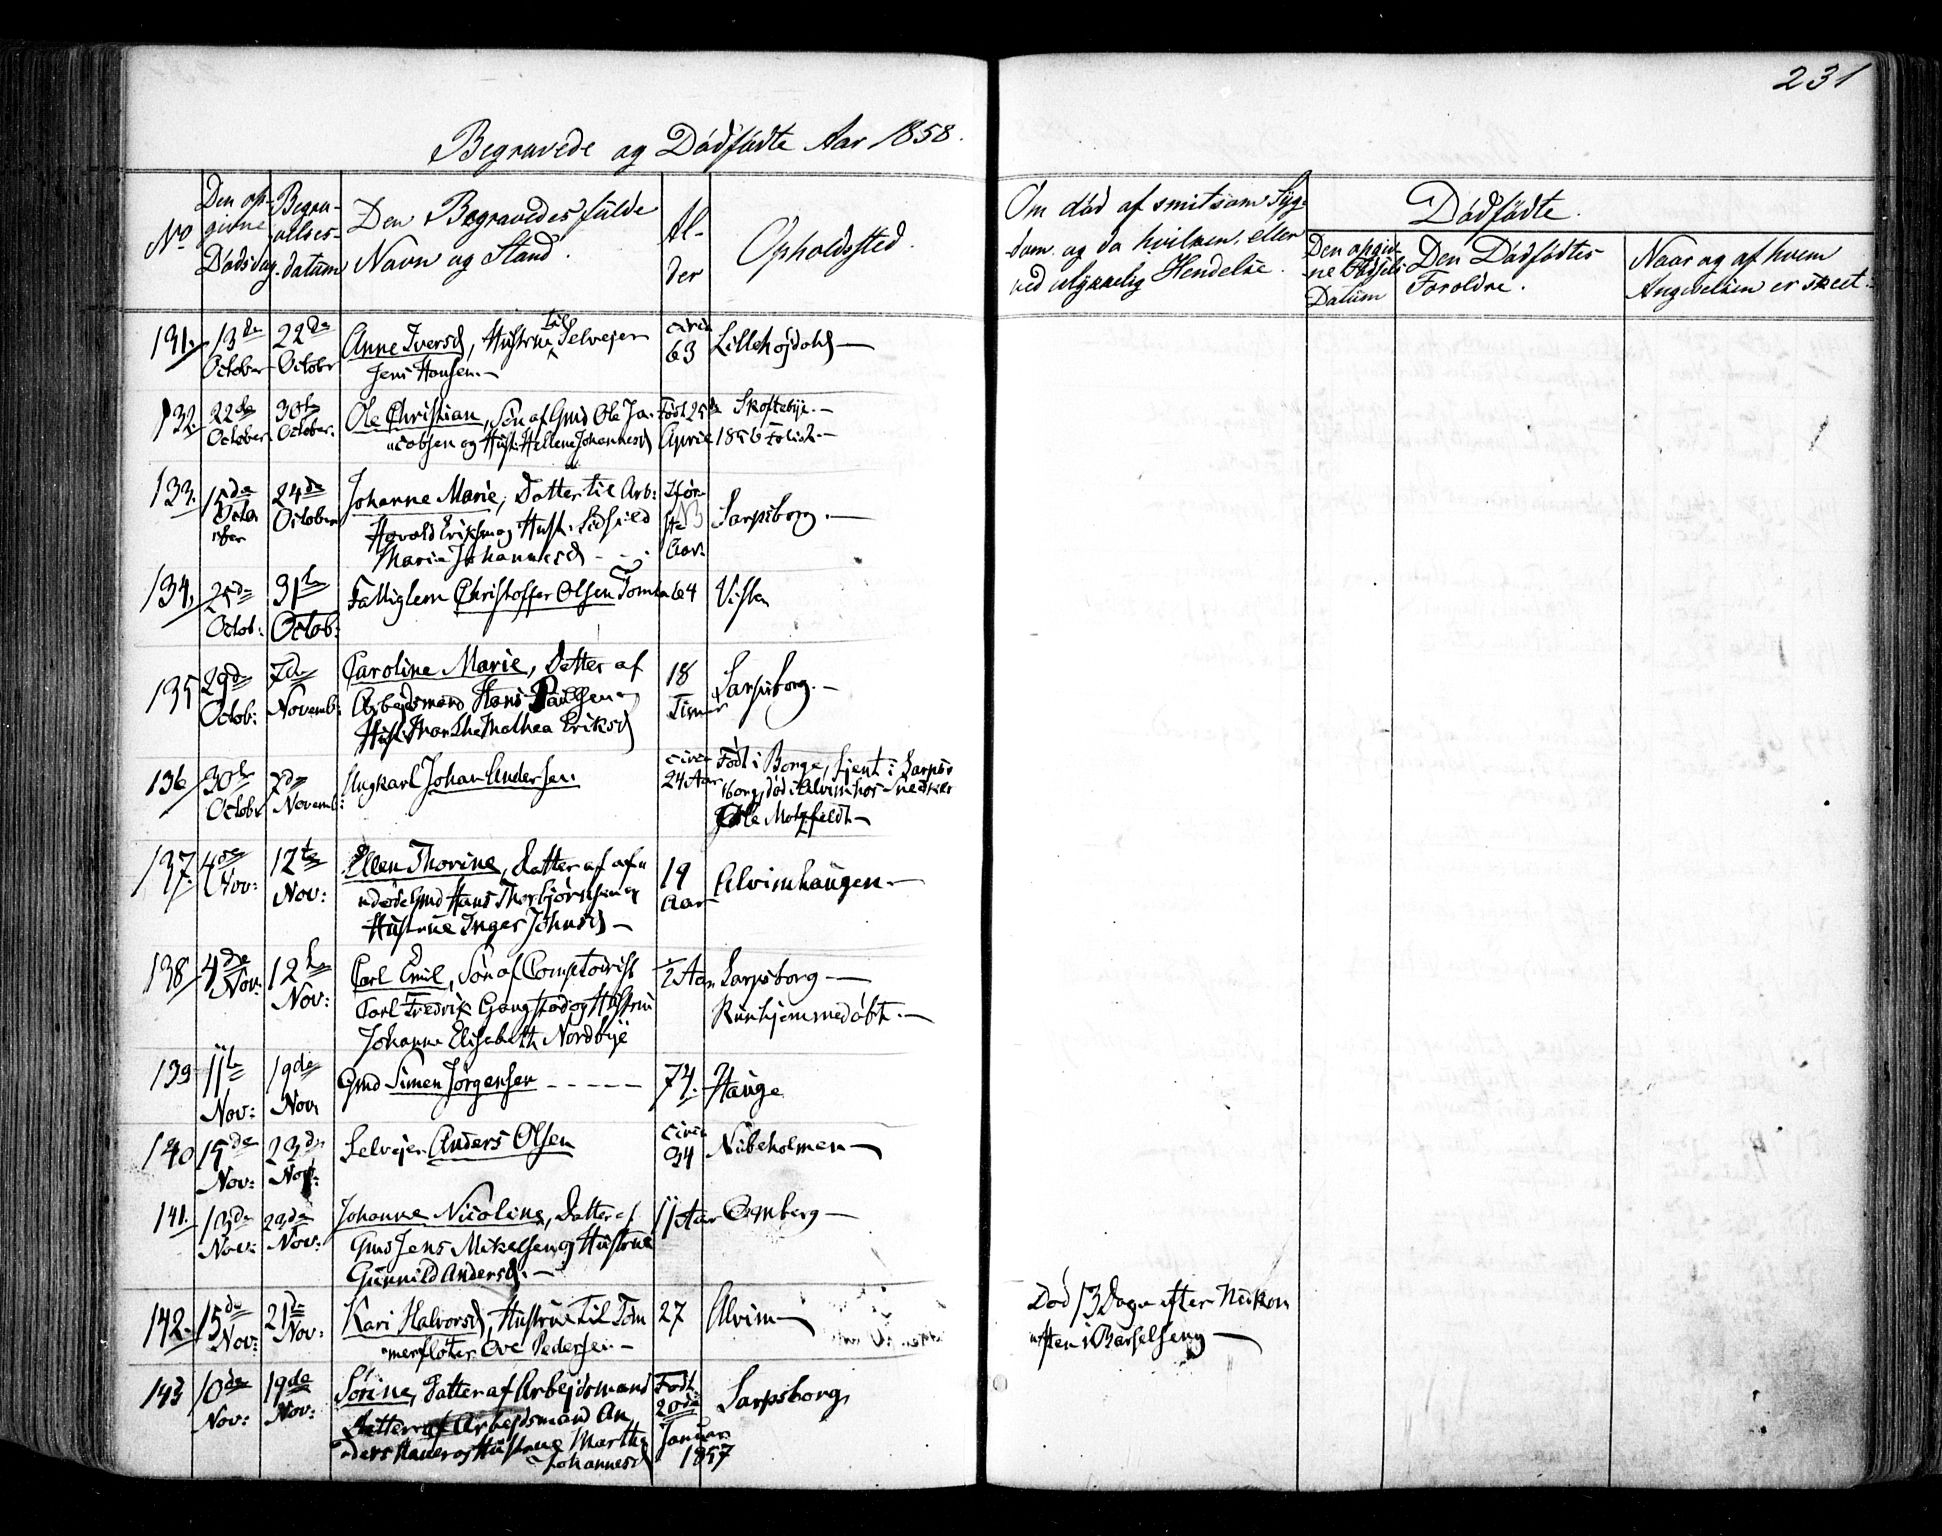 231
Begravede og Dödfödte Aar 1858.
No
Den op-
givne
Dödsdag
Begra-
velses-
datum
Den Begravedes fulde
Navn og Stand.
Al-
der
Opholdssted.
Om död af smitsom Syg-
dom og da hvilken, eller
ved ulykkelig Hendelse.
Dödfödte.
Den opgiv-
ne Födsels
Datum
Den Dödfödtes
Foroldre.
Naar og af hvem
Angivelsen er skeet.
131. 13de October 22de Octobr Anne Iversd, Hustrue til Selveier
Jens Hansen.— circa 63 Lillehöjdahl—
132. 22de October 30te October. Ole Christian, Sön af Gmd Ole Ja-
cobsen og Hust: Hellene Johannesd Födt 25de April 1856 Skoftebye.—
133. 15de October 24de October Johanne Marie, Datter til Arb:
Harald Eriksen og Hust.
Marie Johannesd Aar: Sarpsborg.—
134, 25de Octob: 31te Octob: Fattiglem Christoffer Olsen 64 Visten
135 29de Octob: 7de Novemb: Caroline Marie, Datter af
Arbejdsmand Hans Paulsen og
Hust: Marthe Mathea Eriksd 18 Timer Sarpsborg.—
136 30te Octobr 7de Novemb: Ungkarl Johan Andersen circa 24 Aar Födt i Borge, tjent i Sarps-
borg, död i Alvim hos Snedker
Ole Motzfeldt—
137. 4de Nov: 12te Nov: Ellen Thorine, Datter af af-
döde Gmd Hans Thorbjörnsen og
Hustrue Inger Johnsd— 19 Aar Alvimhaugen—
138 4de Nov: 12te Nov: Carl Emil, Sön af Comptoirist
Carl Fredrik Gangstad og Hustrue
Johanne Elisabeth Nordbye ½ Aar Sarpsborg—
Kun hjemmedöbt.—
139 11te Nov: 19de Nov Gmd Simen Jörgensen ----- 74. Hauge
140 15de Nov: 23de Nov: Selvejer Anders Olsen circa 34 Nabeholmen—
141. 13de Nov: 23de Nov: Johanne Nicoline, Datter af
Gmd Jens Mikelsen og Hustrue
Gunnild Andersd.— 11 Aar
142. 15de Nov: 21de Nov: Kari Halvorsd, Hustrue til Töm-
merflöter Ove Pedersen— 27 Alvim—
Död 13 Dage efter Nedkom-
sten i Barselseng—
143 10de Nov: 19de Nov: Sörine, Datter af Arbejdsmand
Datter af Arbejdsmand An-
ders og Hustrue Marthe
Johannesd Födt 20de Januar 1857 Sarpsborg,